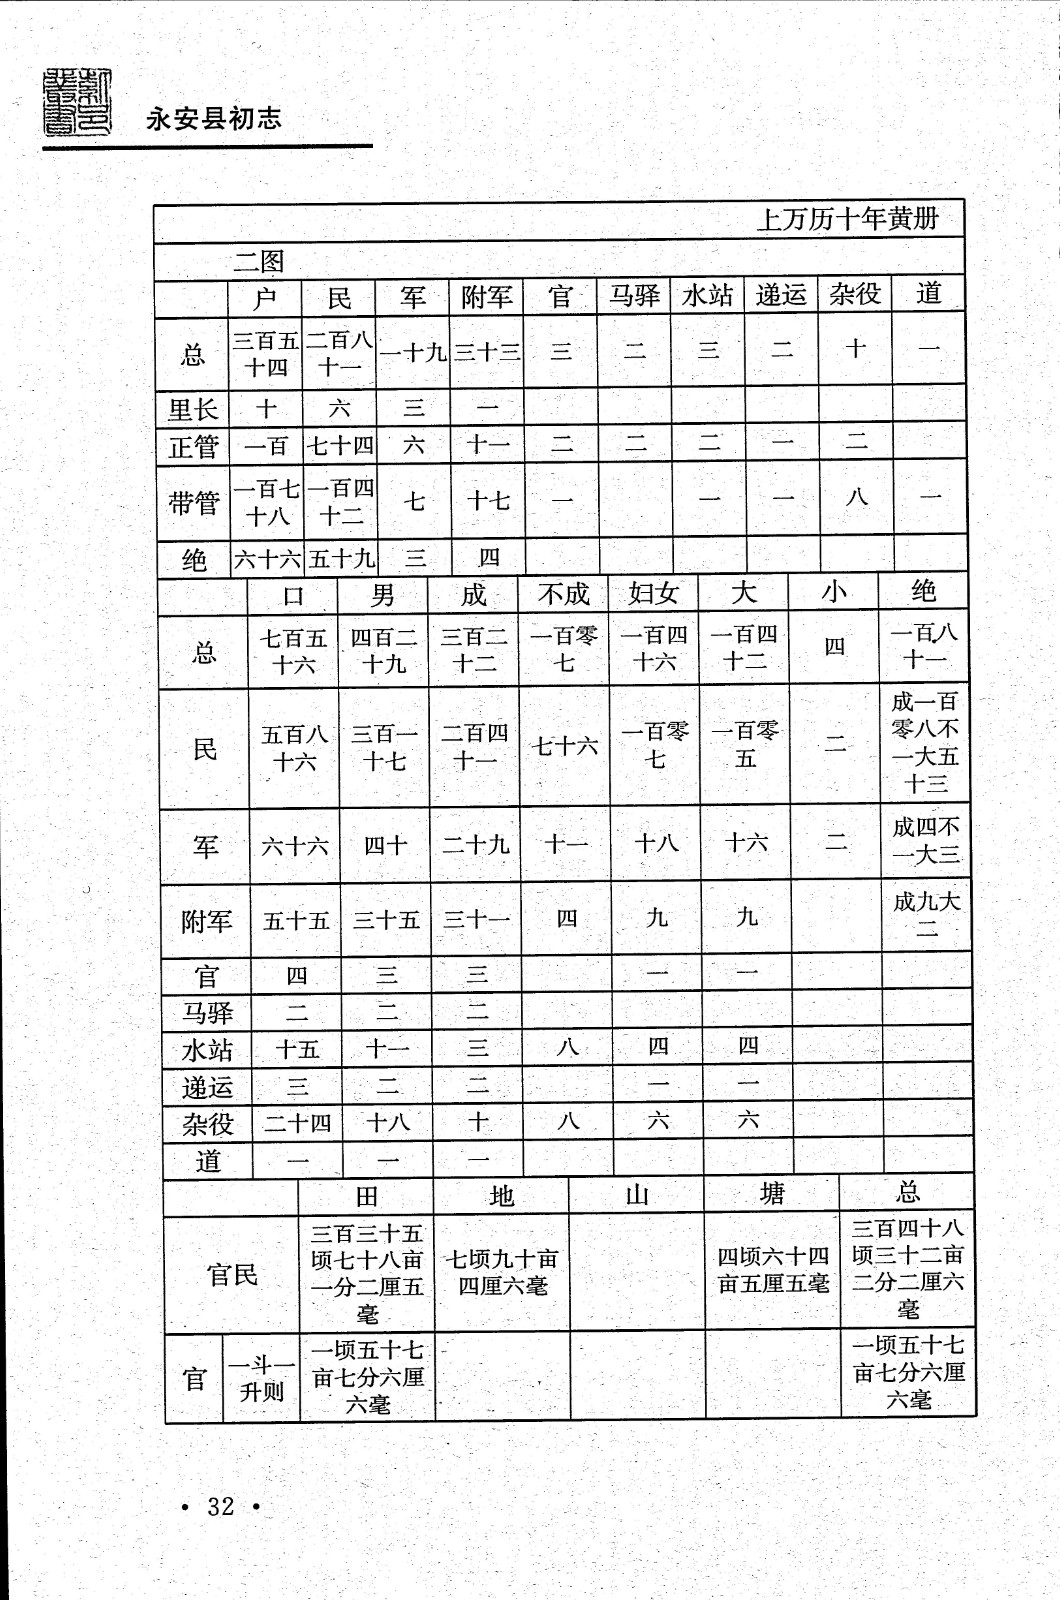 永安县初志
上万历十年黄册
二图
户 民 军 附军 官 马驿 水站 递运 杂役 道
总 三百五十四 二百八十一 一十九 三十三 三 二 三 二 十 一
里长 十 六 三 一
正管 一百 七十四 六 十一 二 二 二 一 二
带管 一百七十八 一百四十二 七 十七 一 一 一 八 一
绝 六十六 五十九 三 四
口 男 成 不成 妇女 大 小 绝
总 七百五十六 四百二十九 三百二十二 一百零七 一百四十六 一百四十二 四 一百八十一
民 五百八十六 三百一十七 二百四十一 七十六 一百零七 一百零五 二 成一百零八不一大五十三
军 六十六 四十 二十九 十一 十八 十六 二 成四不一大三
附军 五十五 三十五 三十一 四 九 九 成九大二
官 四 三 三 一 一
马驿 二 二 二
水站 十五 十一 三 八 四 四
递运 三 二 二 一 一
杂役 二十四 十八 十 八 六 六
道 一 一 一
田 地 山 塘 总
官民 三百三十五顷七十八亩一分二厘五毫 七顷九十亩四厘六毫 四顷六十四亩五厘五毫 三百四十八顷三十二亩二分二厘六毫
官 一斗一升则 一顷五十七亩七分六厘六毫 一顷五十七亩七分六厘六毫
· 32 ·